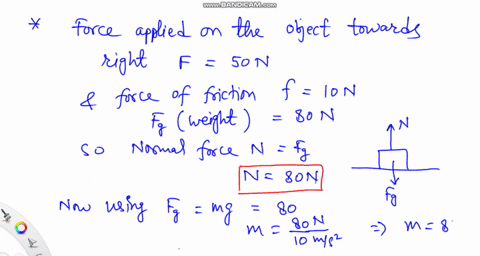 WWW.BANDICAM.COM
* Force applied on the object towards
right F = 50 N
& force of friction f = 10 N
Fg (weight) = 80 N
so Normal force N = Fg
N = 80N
N
Fg
Now using Fg = mg = 80
m = 80 N / 10 m/s² ⇒ m = 8